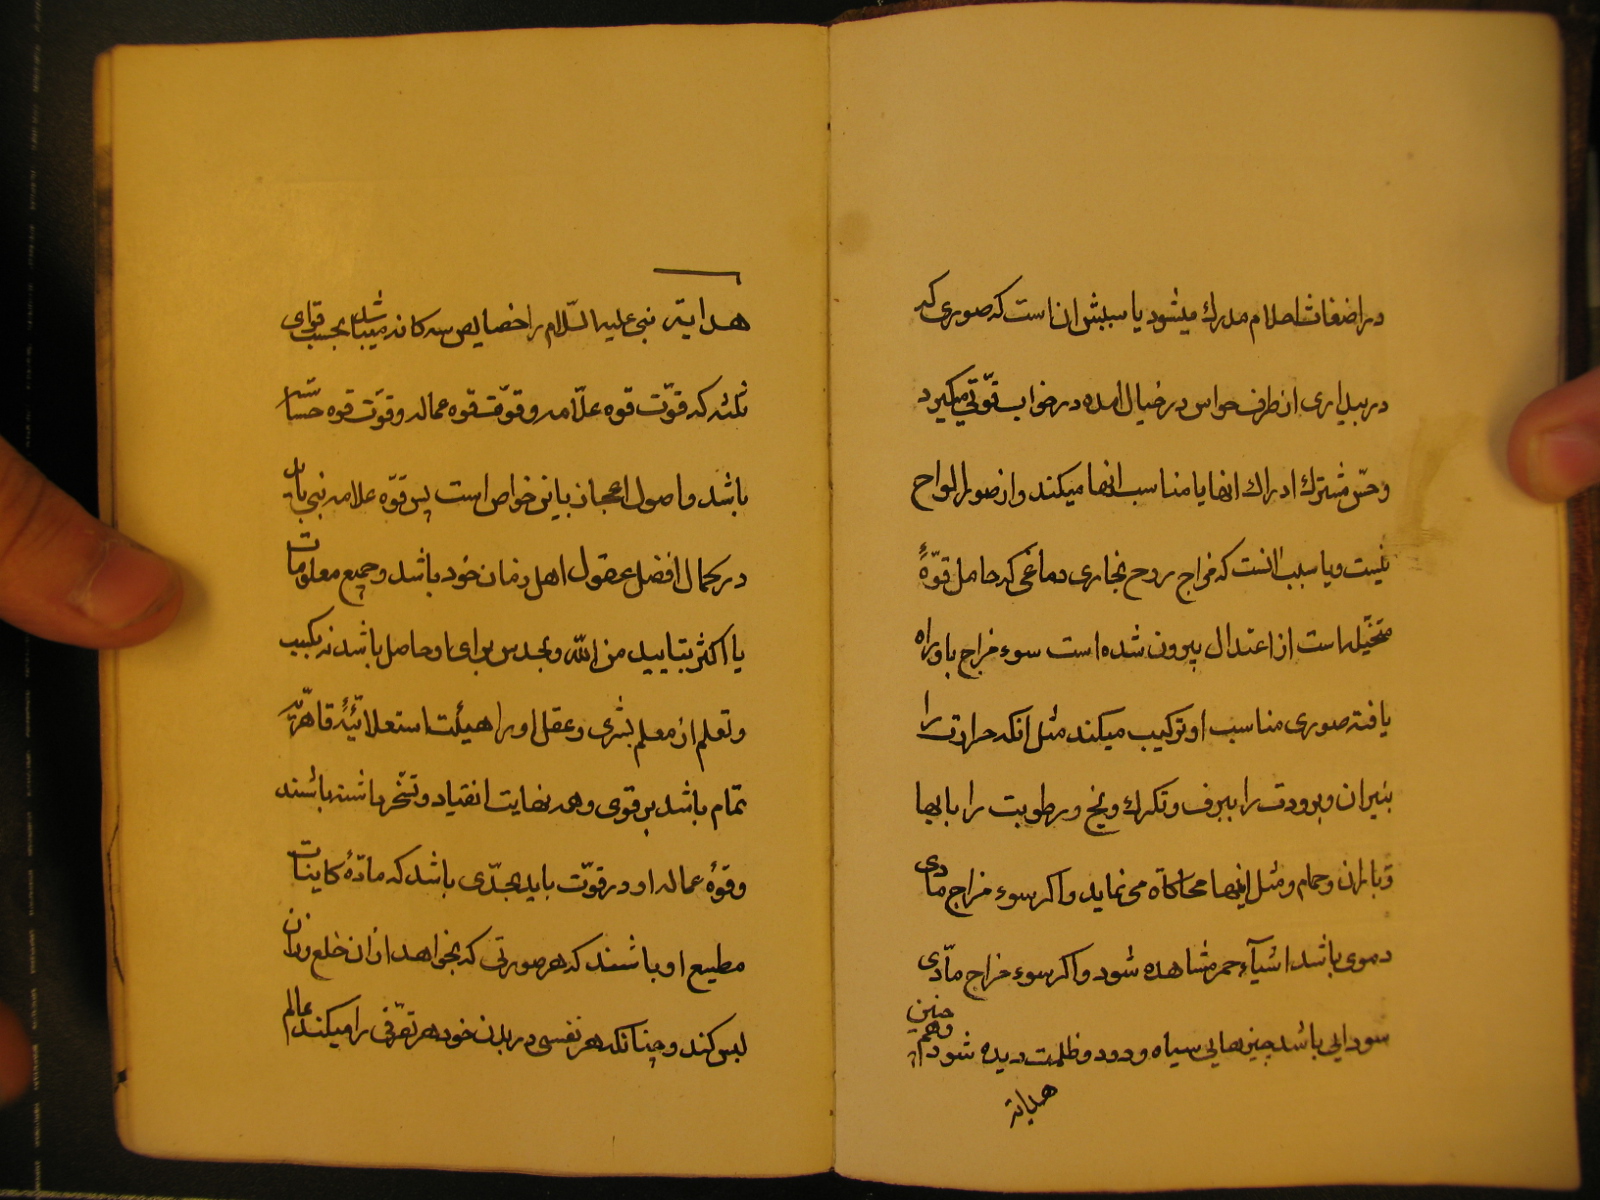 در اضغاث احلام مدرك میشود یا سببش ان است كه صوری كه
در بیداری از طرف حواس در خیال امده در خواب قوّتی میكیرد
و حسّ مشترك ادراك انها یا مناسب انها میكند و ان صور از الواح
نیست و یا سبب انست كه مزاج روح بخاری دماغی كه حامل قوّهٔ
متخیّله است از اعتدال بیرون شده است سوء مزاج باو راه
یافته صوری مناسب او تركیب میكند مثل انكه حرارت را
بنیران و برودت را ببرف و تكرك و یخ و رطوبت را بابها
و باران و حمام و مثل اینها محاكاة می نماید و اكر سوء مزاج مادی
دموی باشد اشیآء حمر مشاهده شود و اكر سوء مزاج مادّی
سودایی باشد چیزهایی سیاه و دود و ظلمت دیده شود و هم چنین
هدایة
هدایة نبی علیه السّلام را خصایص سه كانه میباشد بحسب قوای
ثلثه كه قوّت قوه علّامه و قوّت قوه عماله و قوّت قوه حسّاسه
باشد و اصول اعجاز باین خواص است پس قوّه علامه نبی باید
در كمال افضل عقول اهل زمان خود باشد و جمیع معلومات
یا اكثر بتایید من اللّه و بحدس برای او حاصل باشد نه بكسب
و تعلم از معلم بشری و عقل او را هیئت استعلائیّهٔ قاهرّیه
تمام باشد بر قوی و همه نهایت انقیاد و تسخّر داشته باشند
و قوهٔ عماله او در قوّت باید بحدّی باشد كه مادّهٔ كاینات
مطیع او باشند كه هر صورتی كه بخواهد از ان خلع و بان
لبس كند و چنانكه هر نفسی در بدن خود هر تصرّفی را میكند عالم